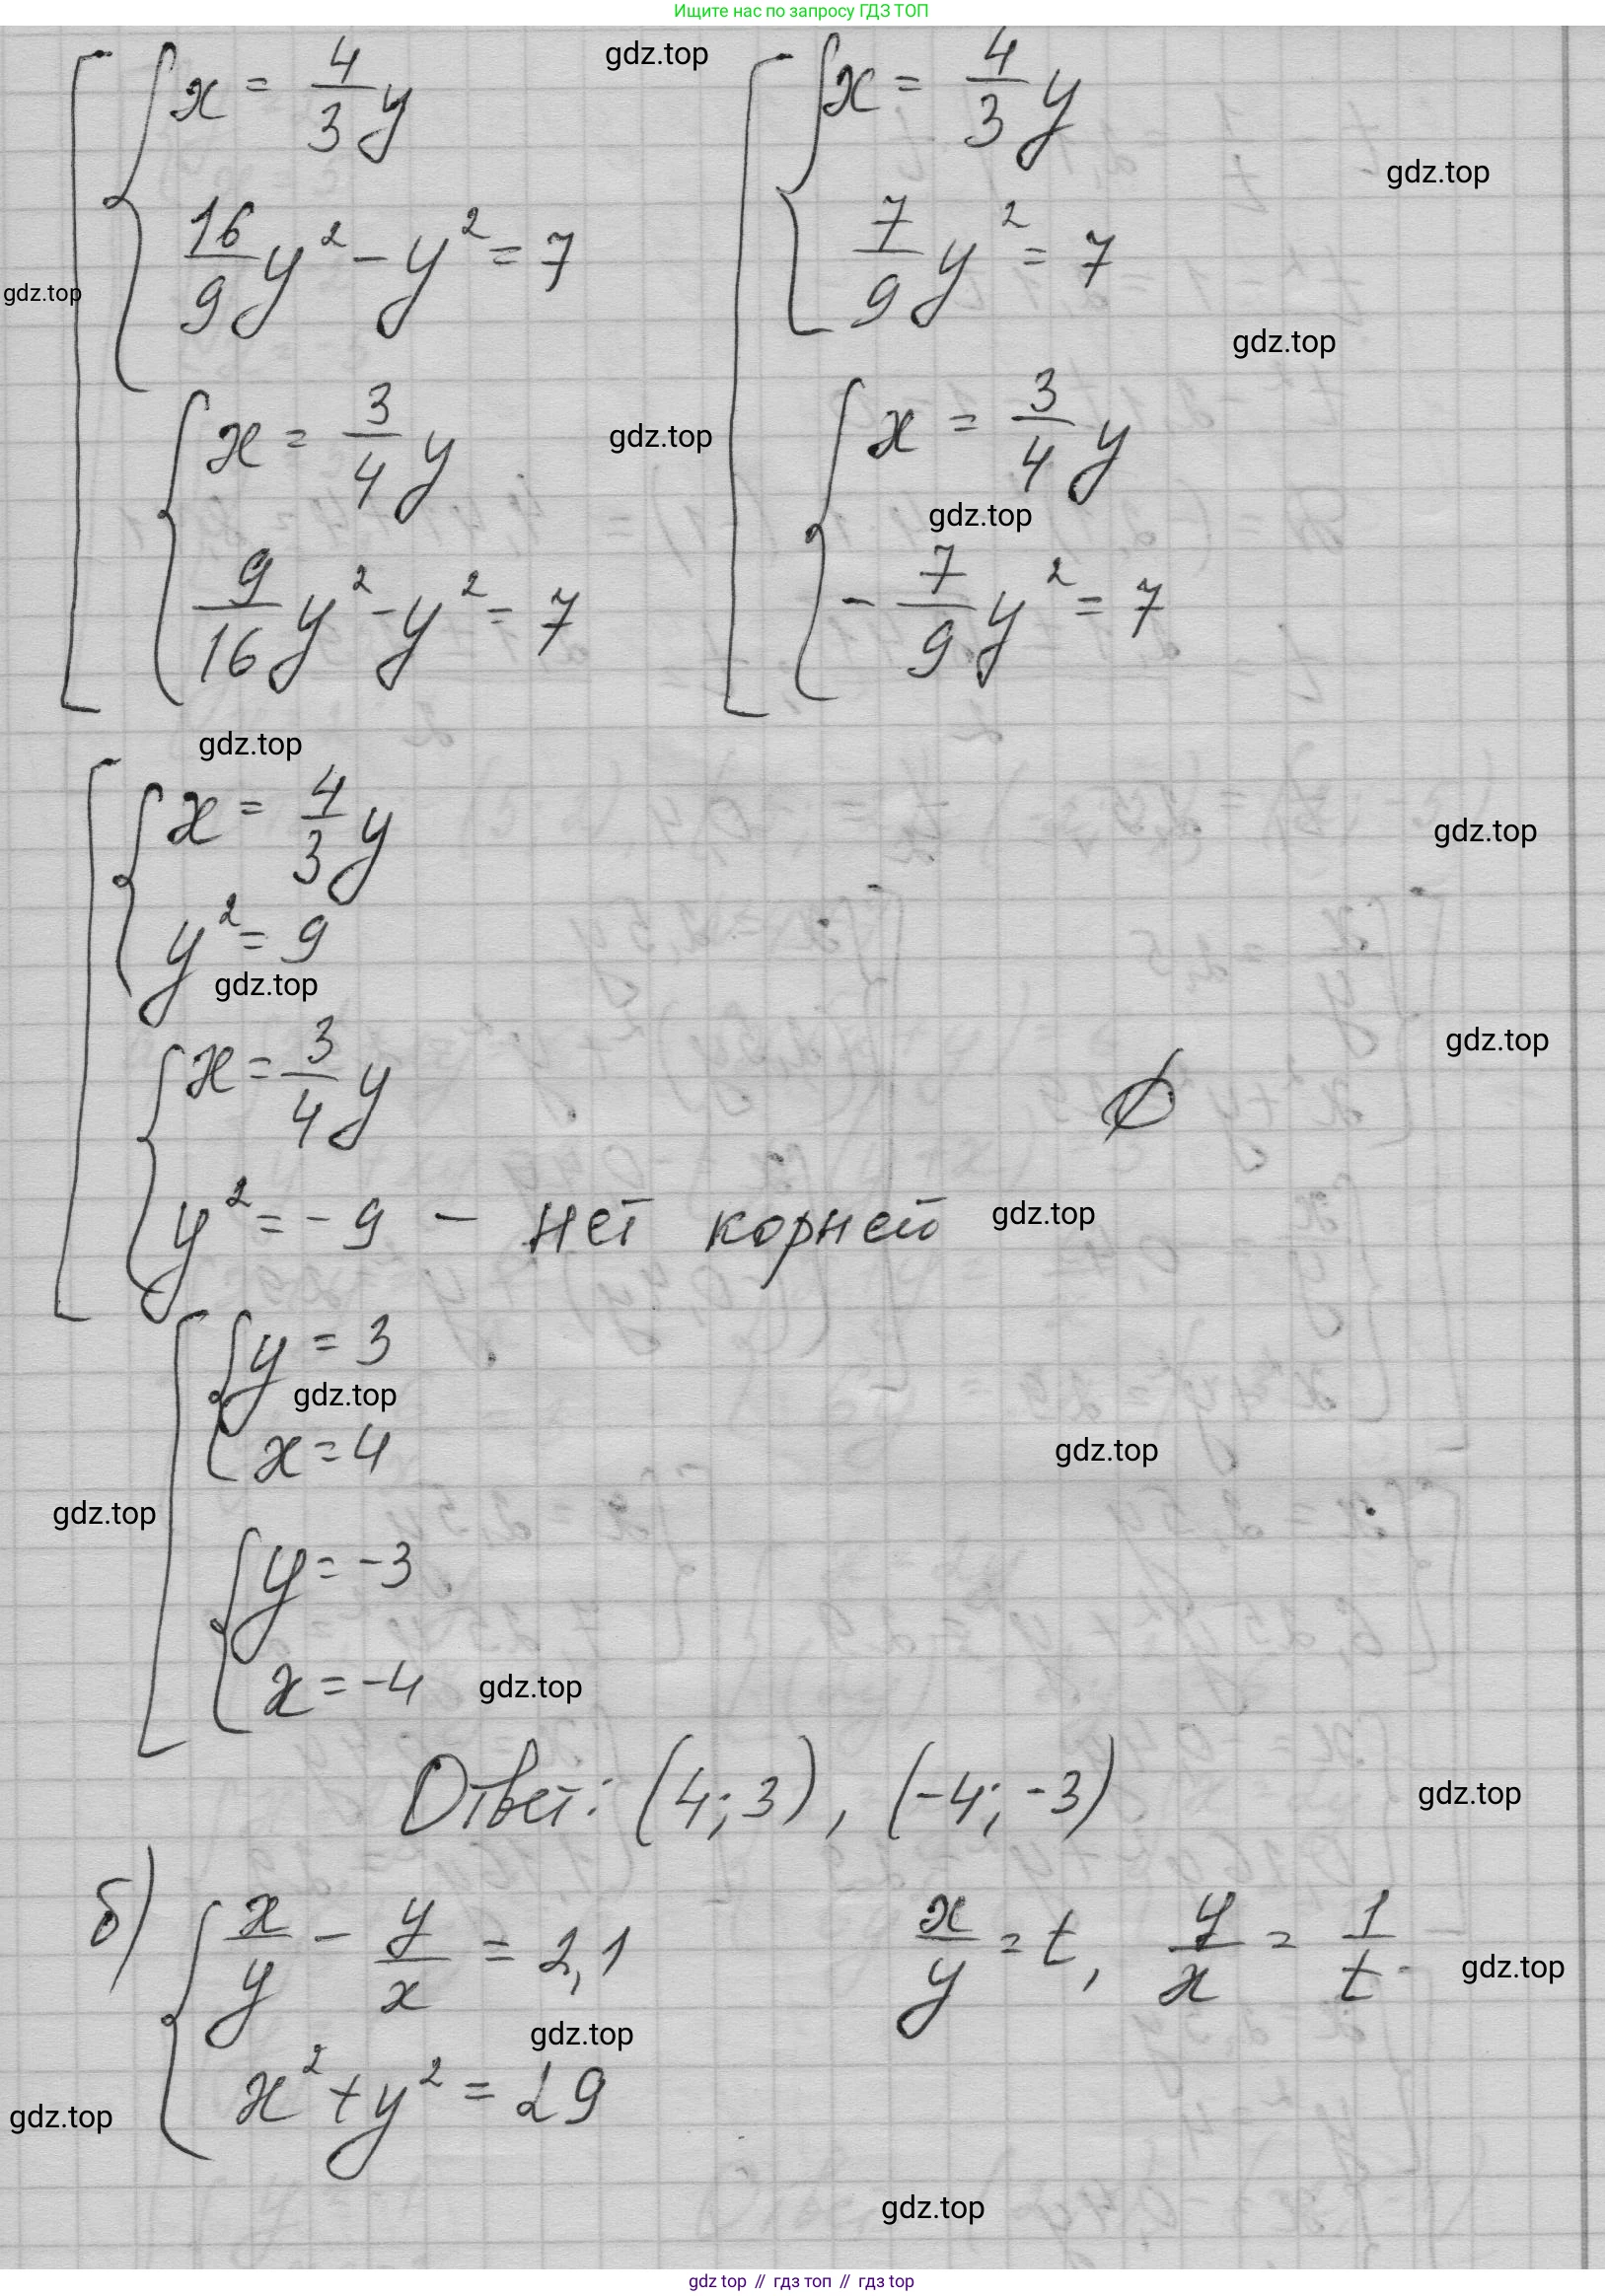 Ищите нас по запросу ГДЗ ТОП
x = 4/3 y
16/9 y² - y² = 7
x = 3/4 y
9/16 y² - y² = 7
x = 4/3 y
7/9 y² = 7
x = 3/4 y
- 7/9 y² = 7
gdz.top
gdz.top
gdz.top
gdz.top
gdz.top
gdz.top
gdz.top
x = 4/3 y
y² = 9
x = 3/4 y
y² = - 9 - нет корней
∅
gdz.top
gdz.top
gdz.top
gdz.top
y = 3
x = 4
y = -3
x = -4
gdz.top
gdz.top
gdz.top
gdz.top
Ответ: (4; 3), (-4; -3)
gdz.top
б) x/y - y/x = 2,1
x² + y² = 29
x/y = t, y/x = 1/t.
gdz.top
gdz.top
gdz.top
gdz.top
gdz top // гдз топ // гдз top